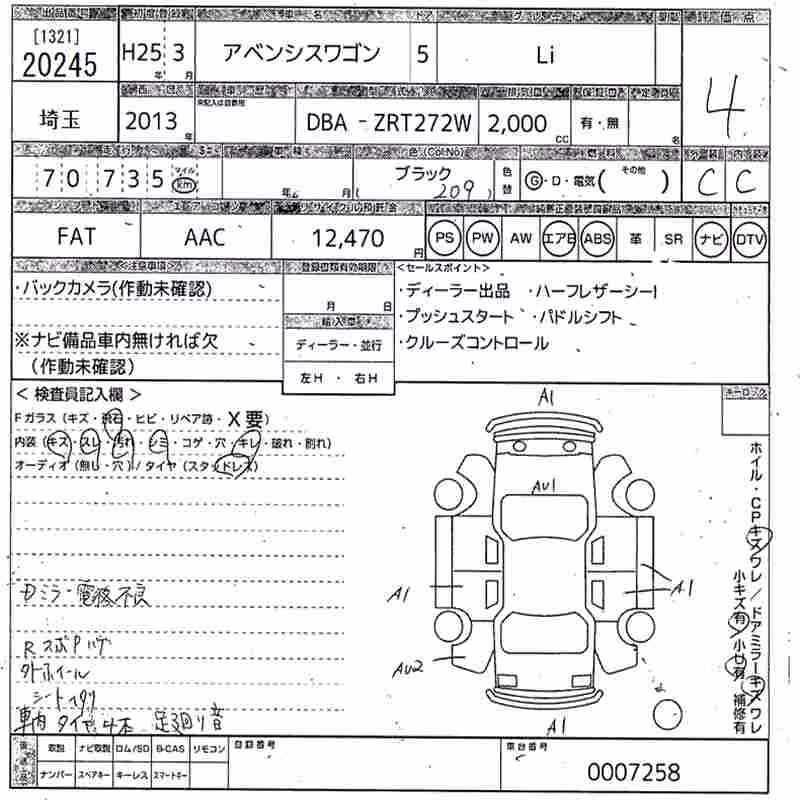 出品番号 初度登録 車名 ドア グレード 評価点
[1321]
20245 H25年 3月 アベンシスワゴン 5 Li 4
車歴 型式 排気量
埼玉 2013年 DBA - ZRT272W 2,000CC 有・無 名
未記入は自家用
走行 車検 色(ColNo) 燃料 外装 内装
70735 マイル km 年 月 ブラック 209 色替 G・D・電気(その他 ) C C
リサイクル預託金
FAT AAC 12,470円 PS PW AW エアB ABS 革 SR ナビ DTV
<注意事項> 登録書類有効期限 <セールスポイント>
・バックカメラ(作動未確認) 月 日 ・ディーラー出品 ・ハーフレザーシー
輸入車 ・プッシュスタート ・パドルシフト
※ナビ備品車内無ければ欠 ディーラー・並行 ・クルーズコントロール
(作動未確認) 左H ・ 右H
<検査員記入欄> キーロック
Fガラス(キズ・飛石・ヒビ・リペア跡・X要)
内装(キズ・スレ・汚れ・シミ・コゲ・穴・キレ・破れ・割れ)
オーディオ(無し・穴)/タイヤ(スタッドレス)
A1
AU1
A1
A1
AU2
A1
Dミラー電格不良
RスポP
外ホイール
シート
車内タイヤ4本 足廻り音
ホイル・CPキズワレ/ドアミラーキズワレ
小キズ有 小凹有 補修有
取説 ナビ取説 ロム/SD B-CAS リモコン 登録番号 車台番号
ナンバー スペアキー キーレス スマートキー 0007258